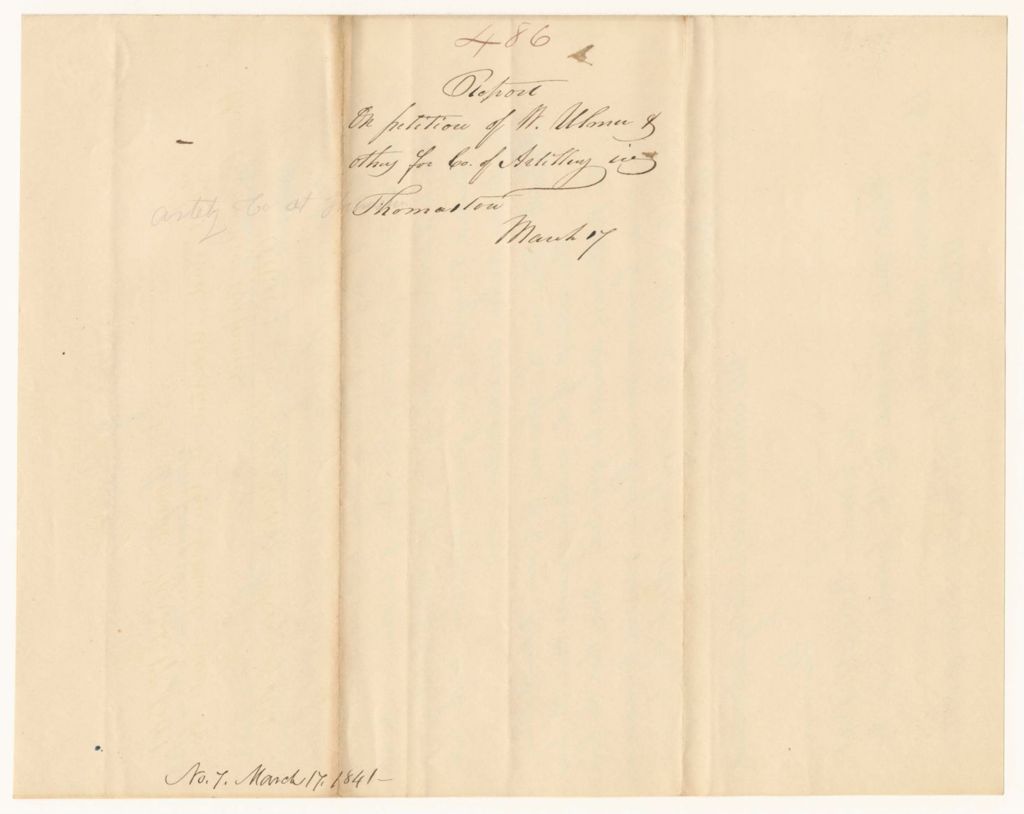 486
Report
On petition of W. Ulmer &
others for Co. of Artillery in
Thomaston
March 17
Co at
No. 7. March 17. 1841-